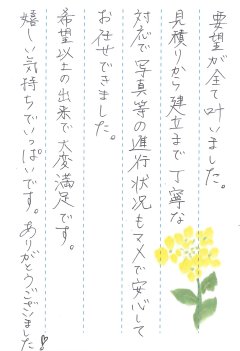 要望が全て叶いました。
見積りから建立まで丁寧な
対応で写真等の進行状況もマメで安心して
お任せできました。
希望以上の出来で大変満足です。
嬉しい気持ちでいっぱいです。ありがとうございました!